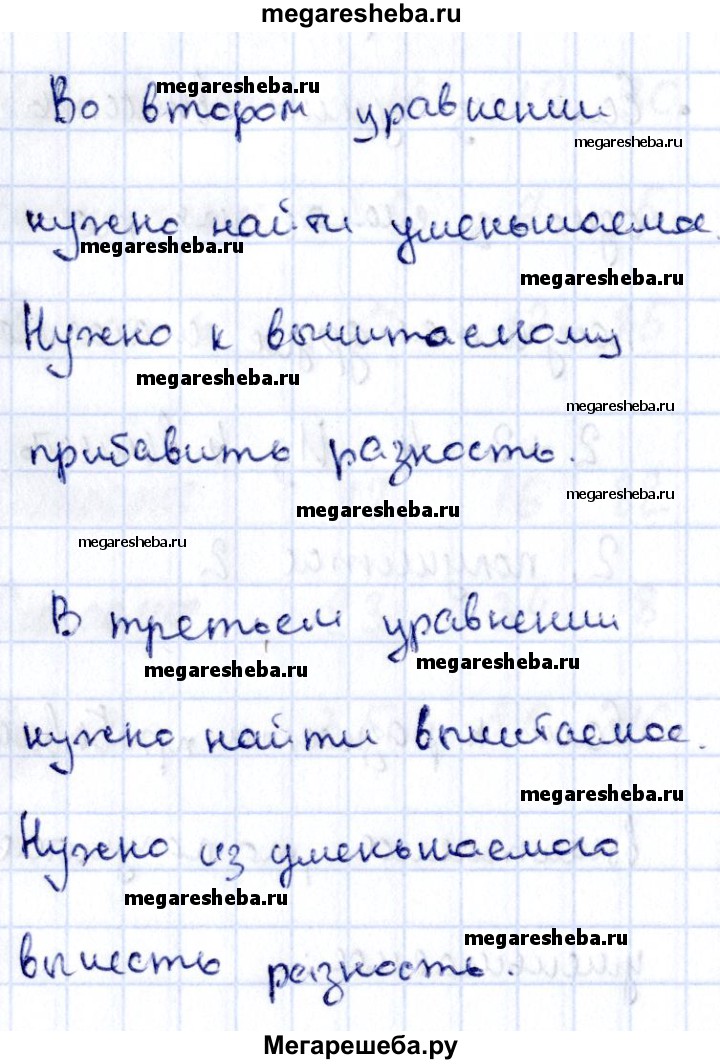 megaresheba.ru
megaresheba.ru
Во втором уравнении
megaresheba.ru
нужно найти уменьшаемое.
megaresheba.ru
megaresheba.ru
Нужно к вычитаемому
megaresheba.ru
megaresheba.ru
прибавить разность.
megaresheba.ru
megaresheba.ru
megaresheba.ru
В третьем уравнении
megaresheba.ru
megaresheba.ru
нужно найти вычитаемое.
megaresheba.ru
Нужно из уменьшаемого
megaresheba.ru
megaresheba.ru
вычесть разность.
Мегарешеба.ру